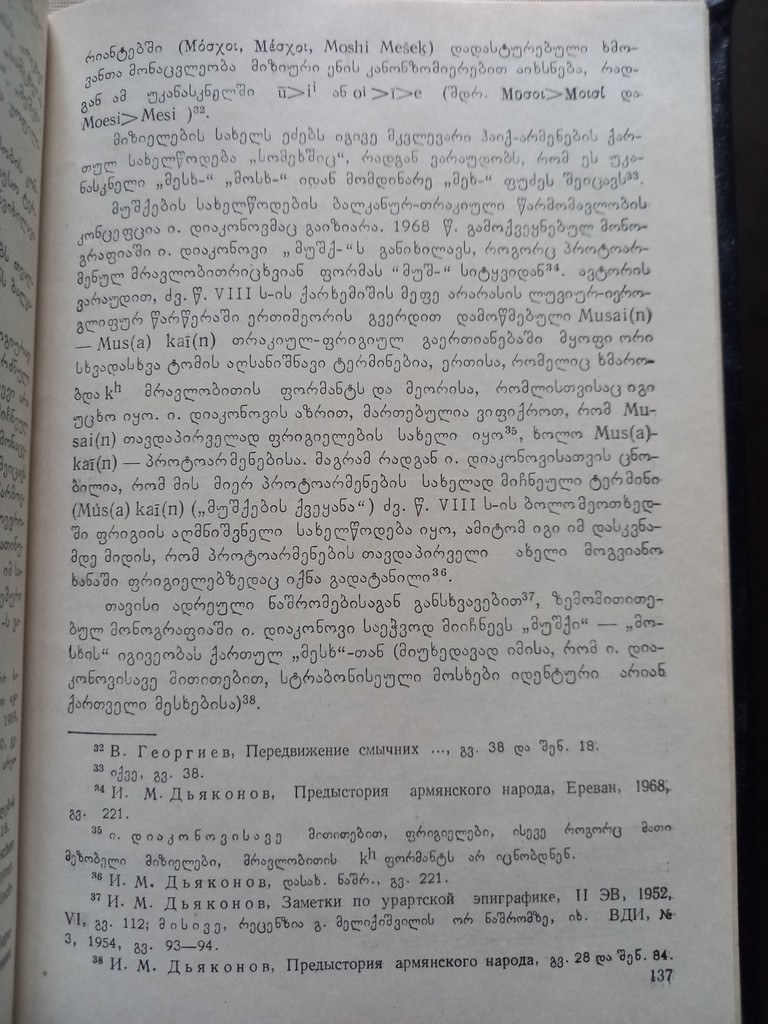 რიანტებში (Μόσχοι, Μέσχοι, Moshi Mešek) დადასტურებული ხმო-
ვანთა მონაცვლეობა მიზიური ენის კანონზომიერებით აიხსნება, რად-
გან ამ უკანასკნელში ū>iⁱ ან oi>i>e (შდრ. Μυσοι>Μοισι და
Moesi>Mesi )³².
მიზიელების სახელს ეძებს იგივე მკვლევარი ჰაიქ-არმენების ქარ-
თულ სახელწოდება „სომეხშიც“, რადგან ვარაუდობს, რომ ეს უკა-
ნასკნელი „მესხ-“ „მოსხ-“ იდან მომდინარე „მეხ-“ ფუძეს შეიცავს³³.
მუშქების სახელწოდების ბალკანურ-თრაკიული წარმომავლობის
კონცეფცია ი. დიაკონოვმაც გაიზიარა. 1968 წ. გამოქვეყნებულ მონო-
გრაფიაში ი. დიაკონოვი „მუშქ-“ს განიხილავს, როგორც პროტოარ-
მენულ მრავლობითრიცხვიან ფორმას “მუშ-“ სიტყვიდან³⁴. ავტორის
ვარაუდით, ძვ. წ. VIII ს-ის ქარხემიშის მეფე არარასის ლუვიურ-იერო-
გლიფურ წარწერაში ერთიმეორის გვერდით დამოწმებული Musai(n)
— Mus(a) kaī(n) თრაკიულ-ფრიგიულ გაერთიანებაში მყოფი ორი
სხვადასხვა ტომის აღსანიშნავი ტერმინებია, ერთისა, რომელიც ხმარო-
ბდა kʰ მრავლობითის ფორმანტს და მეორისა, რომლისთვისაც იგი
უცხო იყო. ი. დიაკონოვის აზრით, მართებულია ვიფიქროთ, რომ Mu-
sai(n) თავდაპირველად ფრიგიელების სახელი იყო³⁵, ხოლო Mus(a)-
kaī(n) — პროტოარმენებისა. მაგრამ რადგან ი. დიაკონოვისათვის ცნო-
ბილია, რომ მის მიერ პროტოარმენების სახელად მიჩნეული ტერმინი
(Mus(a) kaī(n) („მუშქების ქვეყანა“) ძვ. წ. VIII ს-ის ბოლომეოთხედ-
ში ფრიგიის აღმნიშვნელი სახელწოდება იყო, ამიტომ იგი იმ დასკვნა-
მდე მიდის, რომ პროტოარმენების თავდაპირველი ახელი მოგვიანო
ხანაში ფრიგიელებზედაც იქნა გადატანილი³⁶.
თავისი ადრეული ნაშრომებისაგან განსხვავებით³⁷, ზემომითითე-
ბულ მონოგრაფიაში ი. დიაკონოვი საეჭვოდ მიიჩნევს „მუშქი“ — „მო-
სხის“ იგივეობას ქართულ „მესხ“-თან (მიუხედავად იმისა, რომ ი. დია-
კონოვისავე მითითებით, სტრაბონისეული მოსხები იდენტური არიან
ქართველი მესხებისა)³⁸.
³² В. Георгиев, Передвижение смычних ..., გვ. 38 და შენ. 18.
³³ იქვე, გვ. 38.
³⁴ И. М. Дьяконов, Предыстория армянского народа, Ереван, 1968,
გვ. 221.
³⁵ ი. დიაკონოვისავე მითითებით, ფრიგიელები, ისევე როგორც მათი
მეზობელი მიზიელები, მრავლობითის kʰ ფორმანტს არ იცნობდნენ.
³⁶ И. М. Дьяконов, დასახ. ნაშრ., გვ. 221.
³⁷ И. М. Дьяконов, Заметки по урартской эпиграфике, II ЭВ, 1952,
VI, გვ. 112; მისივე, რეცენზია გ. მელიქიშვილის ორ ნაშრომზე, იხ. ВДИ, №
3, 1954, გვ. 93—94.
³⁸ И. М. Дьяконов, Предыстория армянского народа, გვ. 28 და შენ. 84.
137